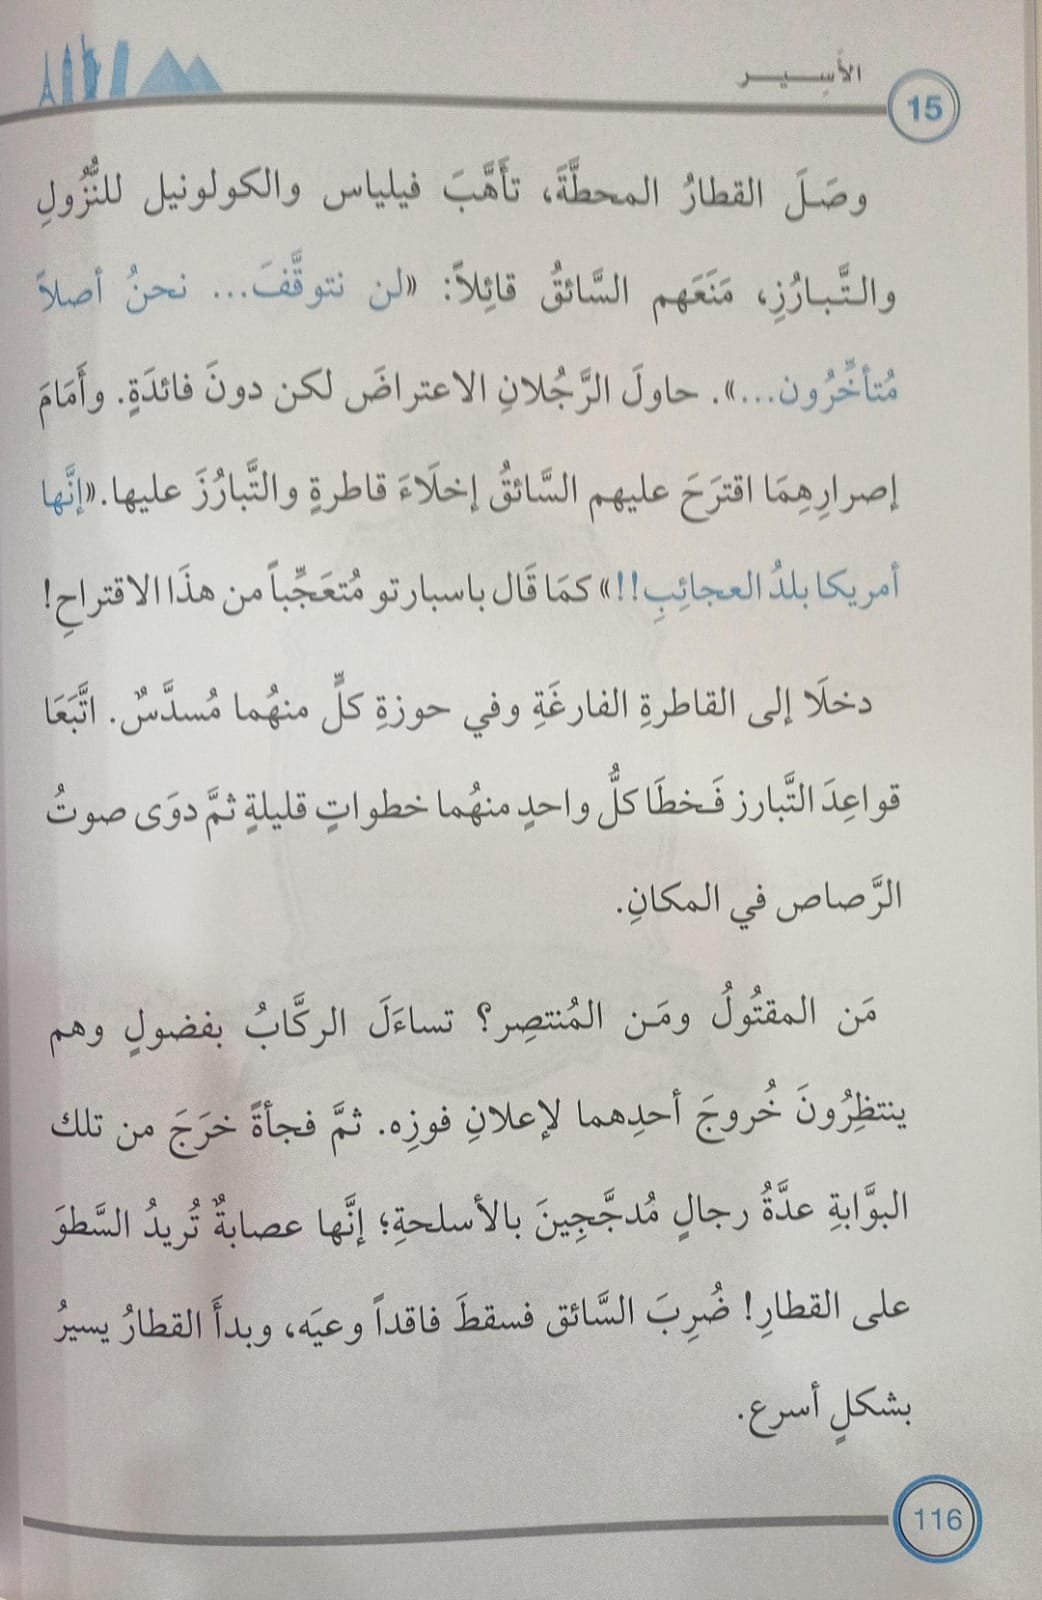 الأَسِيـر
15
وصَلَ القطارُ المحطَّةَ، تأَهَّبَ فيلياس والكولونيل للنُّزُولِ
والتَّبارُزِ، مَنَعَهم السَّائقُ قائِلاً: «لن نتوقَّفَ... نحنُ أصلاً
مُتأخِّرُون...». حاولَ الرَّجُلانِ الاعتراضَ لكن دونَ فائدَةٍ. وأَمَامَ
إصرارِهِمَا اقترَحَ عليهم السَّائقُ إخلَاءَ قاطرةٍ والتَّبارُزَ عليها.«إنَّها
أمريكا بلدُ العجائِبِ!!» كمَا قَال باسبارتو مُتعَجِّباً من هذَا الاقتراحِ!
دخلَا إلى القاطرةِ الفارغَةِ وفي حوزةِ كلٍّ منهُما مُسدَّسٌ. اتَّبَعَا
قواعِدَ التَّبارز فَخطَا كلُّ واحدٍ منهُما خطواتٍ قليلةٍ ثمَّ دوَى صوتُ
الرَّصاص في المكانِ.
مَن المقتُولُ ومَن المُنتصِر؟ تساءَلَ الركَّابُ بفضولٍ وهم
ينتظِرُونَ خُروجَ أحدِهما لإعلانِ فوزِه. ثمَّ فجأةً خرَجَ من تلك
البوَّابةِ عدَّةُ رجالٍ مُدجَّجِينَ بالأسلحةِ؛ إنَّها عصابةٌ تُريدُ السَّطوَ
على القطارِ! ضُرِبَ السَّائق فسقطَ فاقداً وعيَه، وبدأَ القطارُ يسيرُ
بشكلٍ أسرع.
116